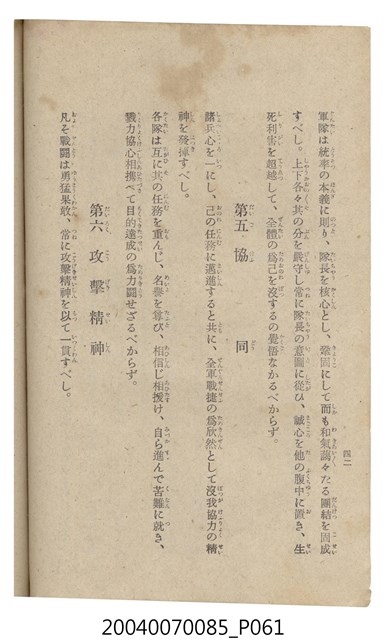 四二
軍隊は統率の本義に則り、隊長を核心とし、鞏固にして而も和氣藹々たる團結を固成
すべし。上下各々其の分を嚴守し常に隊長の意圖に從ひ、誠心を他の腹中に置き、生
死利害を超越して、全體の爲己を沒するの覺悟なかるべからず。
第五 協同
諸兵心を一にし、己の任務に邁進すると共に、全軍戰捷の爲欣然として沒我協力の精
神を發揮すべし。
各隊は互に其の任務を重んじ、名譽を尊び、相信じ相援け、自ら進んで苦難に就き、
戮力協心相携へて目的達成の爲力鬪せざるべからず。
第六 攻擊精神
凡そ戰鬪は勇猛果敢、常に攻擊精神を以て一貫すべし。
20040070085_P061